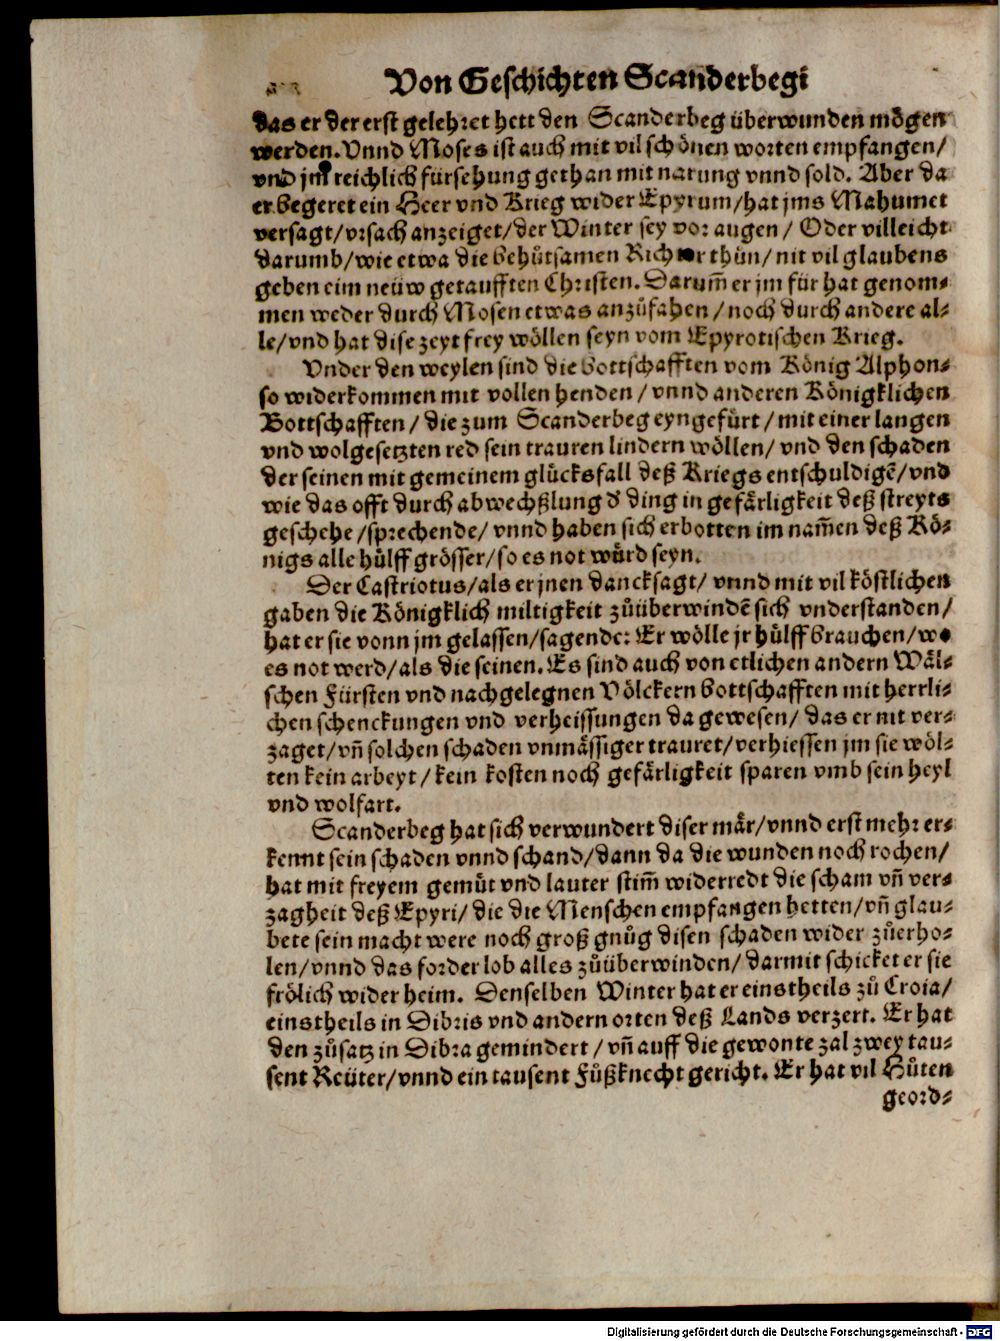 Von Geschichten Scanderbegi
das er der erst gelehret hett den Scanderbeg überwunden mögen
werden. Vnnd Moses ist auch mit vil schönen worten empfangen/
vnd jm reichlich fürsehung gethan mit narung vnnd sold. Aber da
er begeret ein Heer vnd Krieg wider Epyrum/hat jms Mahumet
versagt/vrsach anzeiget/der Winter sey vor augen/ Oder villeicht
darumb/wie etwa die behůtsamen Richter thůn/nit vil glaubens
geben eim neüw getaufften Christen. Darum̃ er jm für hat genom⸗
men weder durch Mosen etwas anzůfahen/noch durch andere al⸗
le/vnd hat dise zeyt frey wöllen seyn vom Epyrotischen Krieg.
Vnder den weylen sind die bottschafften vom König Alphon⸗
so widerkommen mit vollen henden/vnnd anderen Königklichen
Bottschafften/die zum Scanderbeg eyngefürt/mit einer langen
vnd wolgesetzten red sein trauren lindern wöllen/vnd den schaden
der seinen mit gemeinem glücksfall deß Kriegs entschuldigẽ/vnd
wie das offt durch abwechßlung d̕ ding in gefärligkeit deß streyts
geschehe/sprechende/vnnd haben sich erbotten im nam̃en deß Kö⸗
nigs alle hülff grösser/so es not würd seyn.
Der Castriotus/als er jnen dancksagt/vnnd mit vil köstlichen
gaben die Königklich miltigkeit zůüberwindẽ sich vnderstanden/
hat er sie vonn jm gelassen/sagende: Er wölle jr hülff brauchen/wo
es not werd/als die seinen. Es sind auch von etlichen andern Wäl⸗
schen Fürsten vnd nachgelegnen Völckern bottschafften mit herrli⸗
chen schenckungen vnd verheissungen da gewesen/das er nit ver⸗
zaget/vñ solchen schaden vnmässiger trauret/verhiessen jm sie wöl⸗
ten kein arbeyt/kein kosten noch gefärligkeit sparen vmb sein heyl
vnd wolfart.
Scanderbeg hat sich verwundert diser mär/vnnd erst mehr er⸗
kennt sein schaden vnnd schand/dann da die wunden noch rochen/
hat mit freyem gemüt vnd lauter stim̃ widerredt die scham vñ ver⸗
zagheit deß Epyri/die die Menschen empfangen hetten/vñ glau⸗
bete sein macht were noch groß gnůg disen schaden wider zůerho⸗
len/vnnd das forder lob alles zůüberwinden/darmit schicket er sie
frölich wider heim. Denselben Winter hat er einstheils zů Croia/
einstheils in Dibris vnd andern orten deß Lands verzert. Er hat
den zůsatz in Dibra gemindert/vñ auff die gewonte zal zwey tau⸗
sent Reüter/vnnd ein tausent Fůßknecht gericht. Er hat vil Hůten
geord⸗
Digitalisierung gefördert durch die Deutsche Forschungsgemeinschaft - DFG